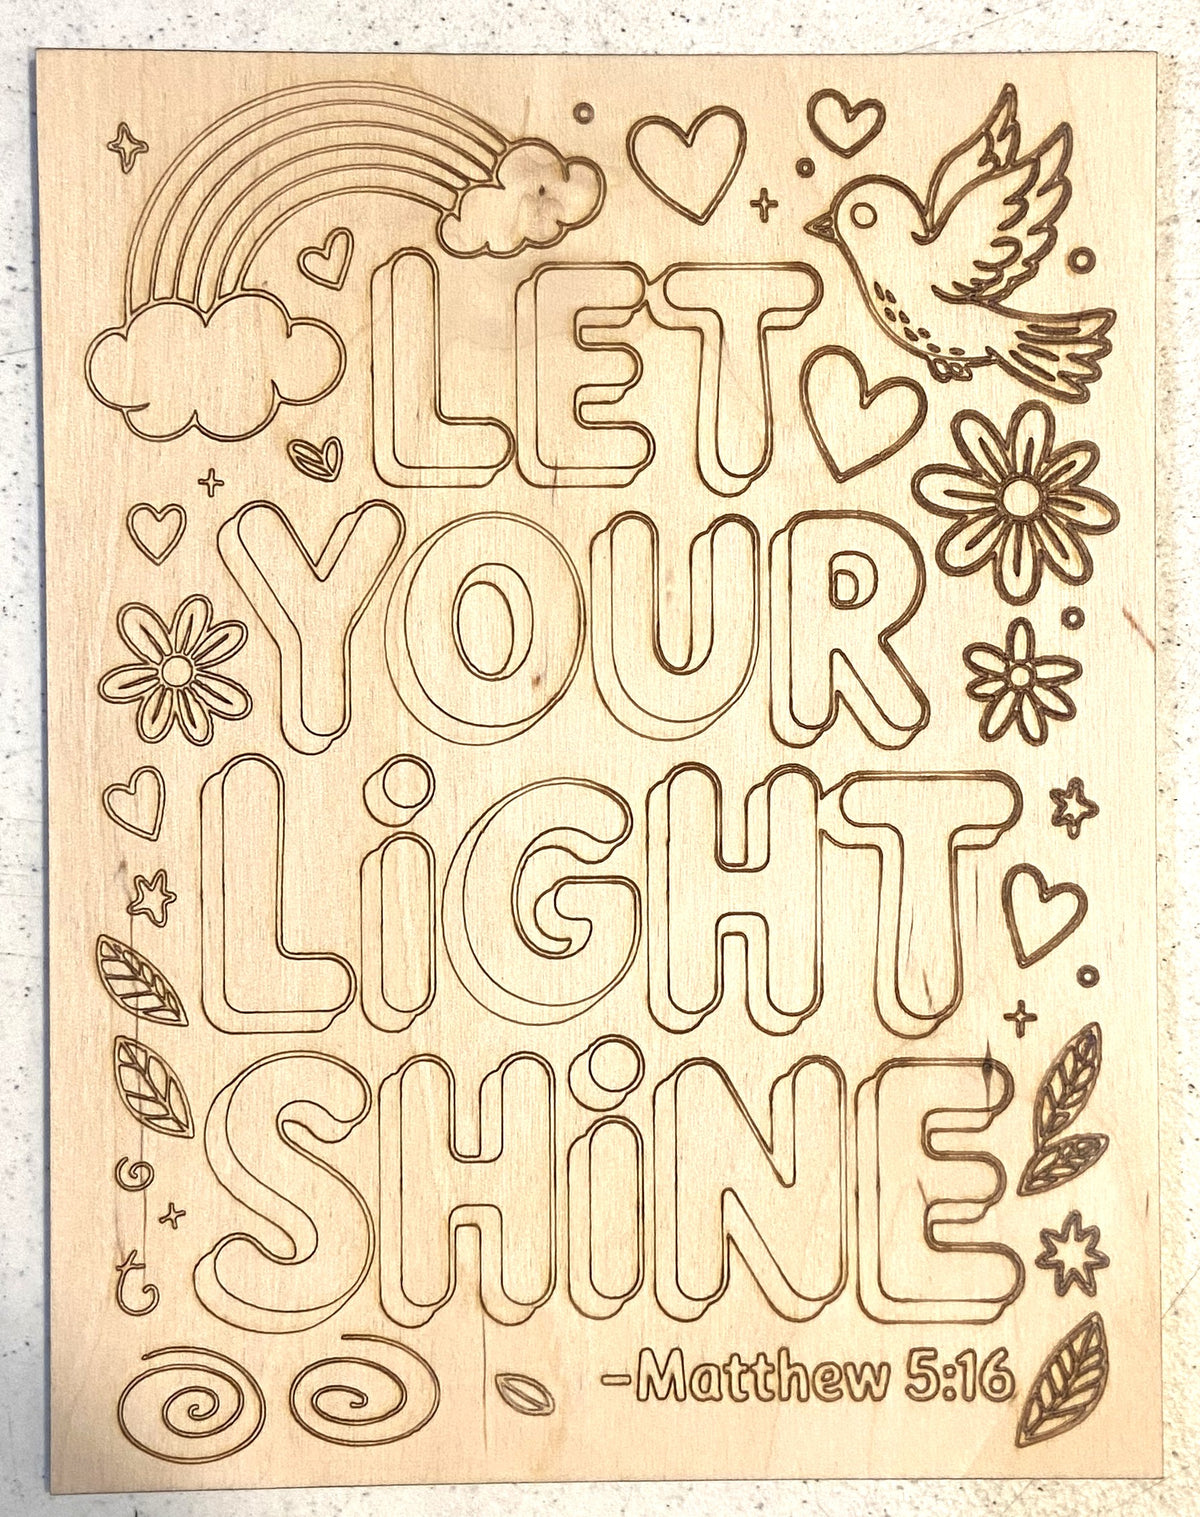 LET
YOUR
LiGHT
SHiNE
-Matthew 5:16